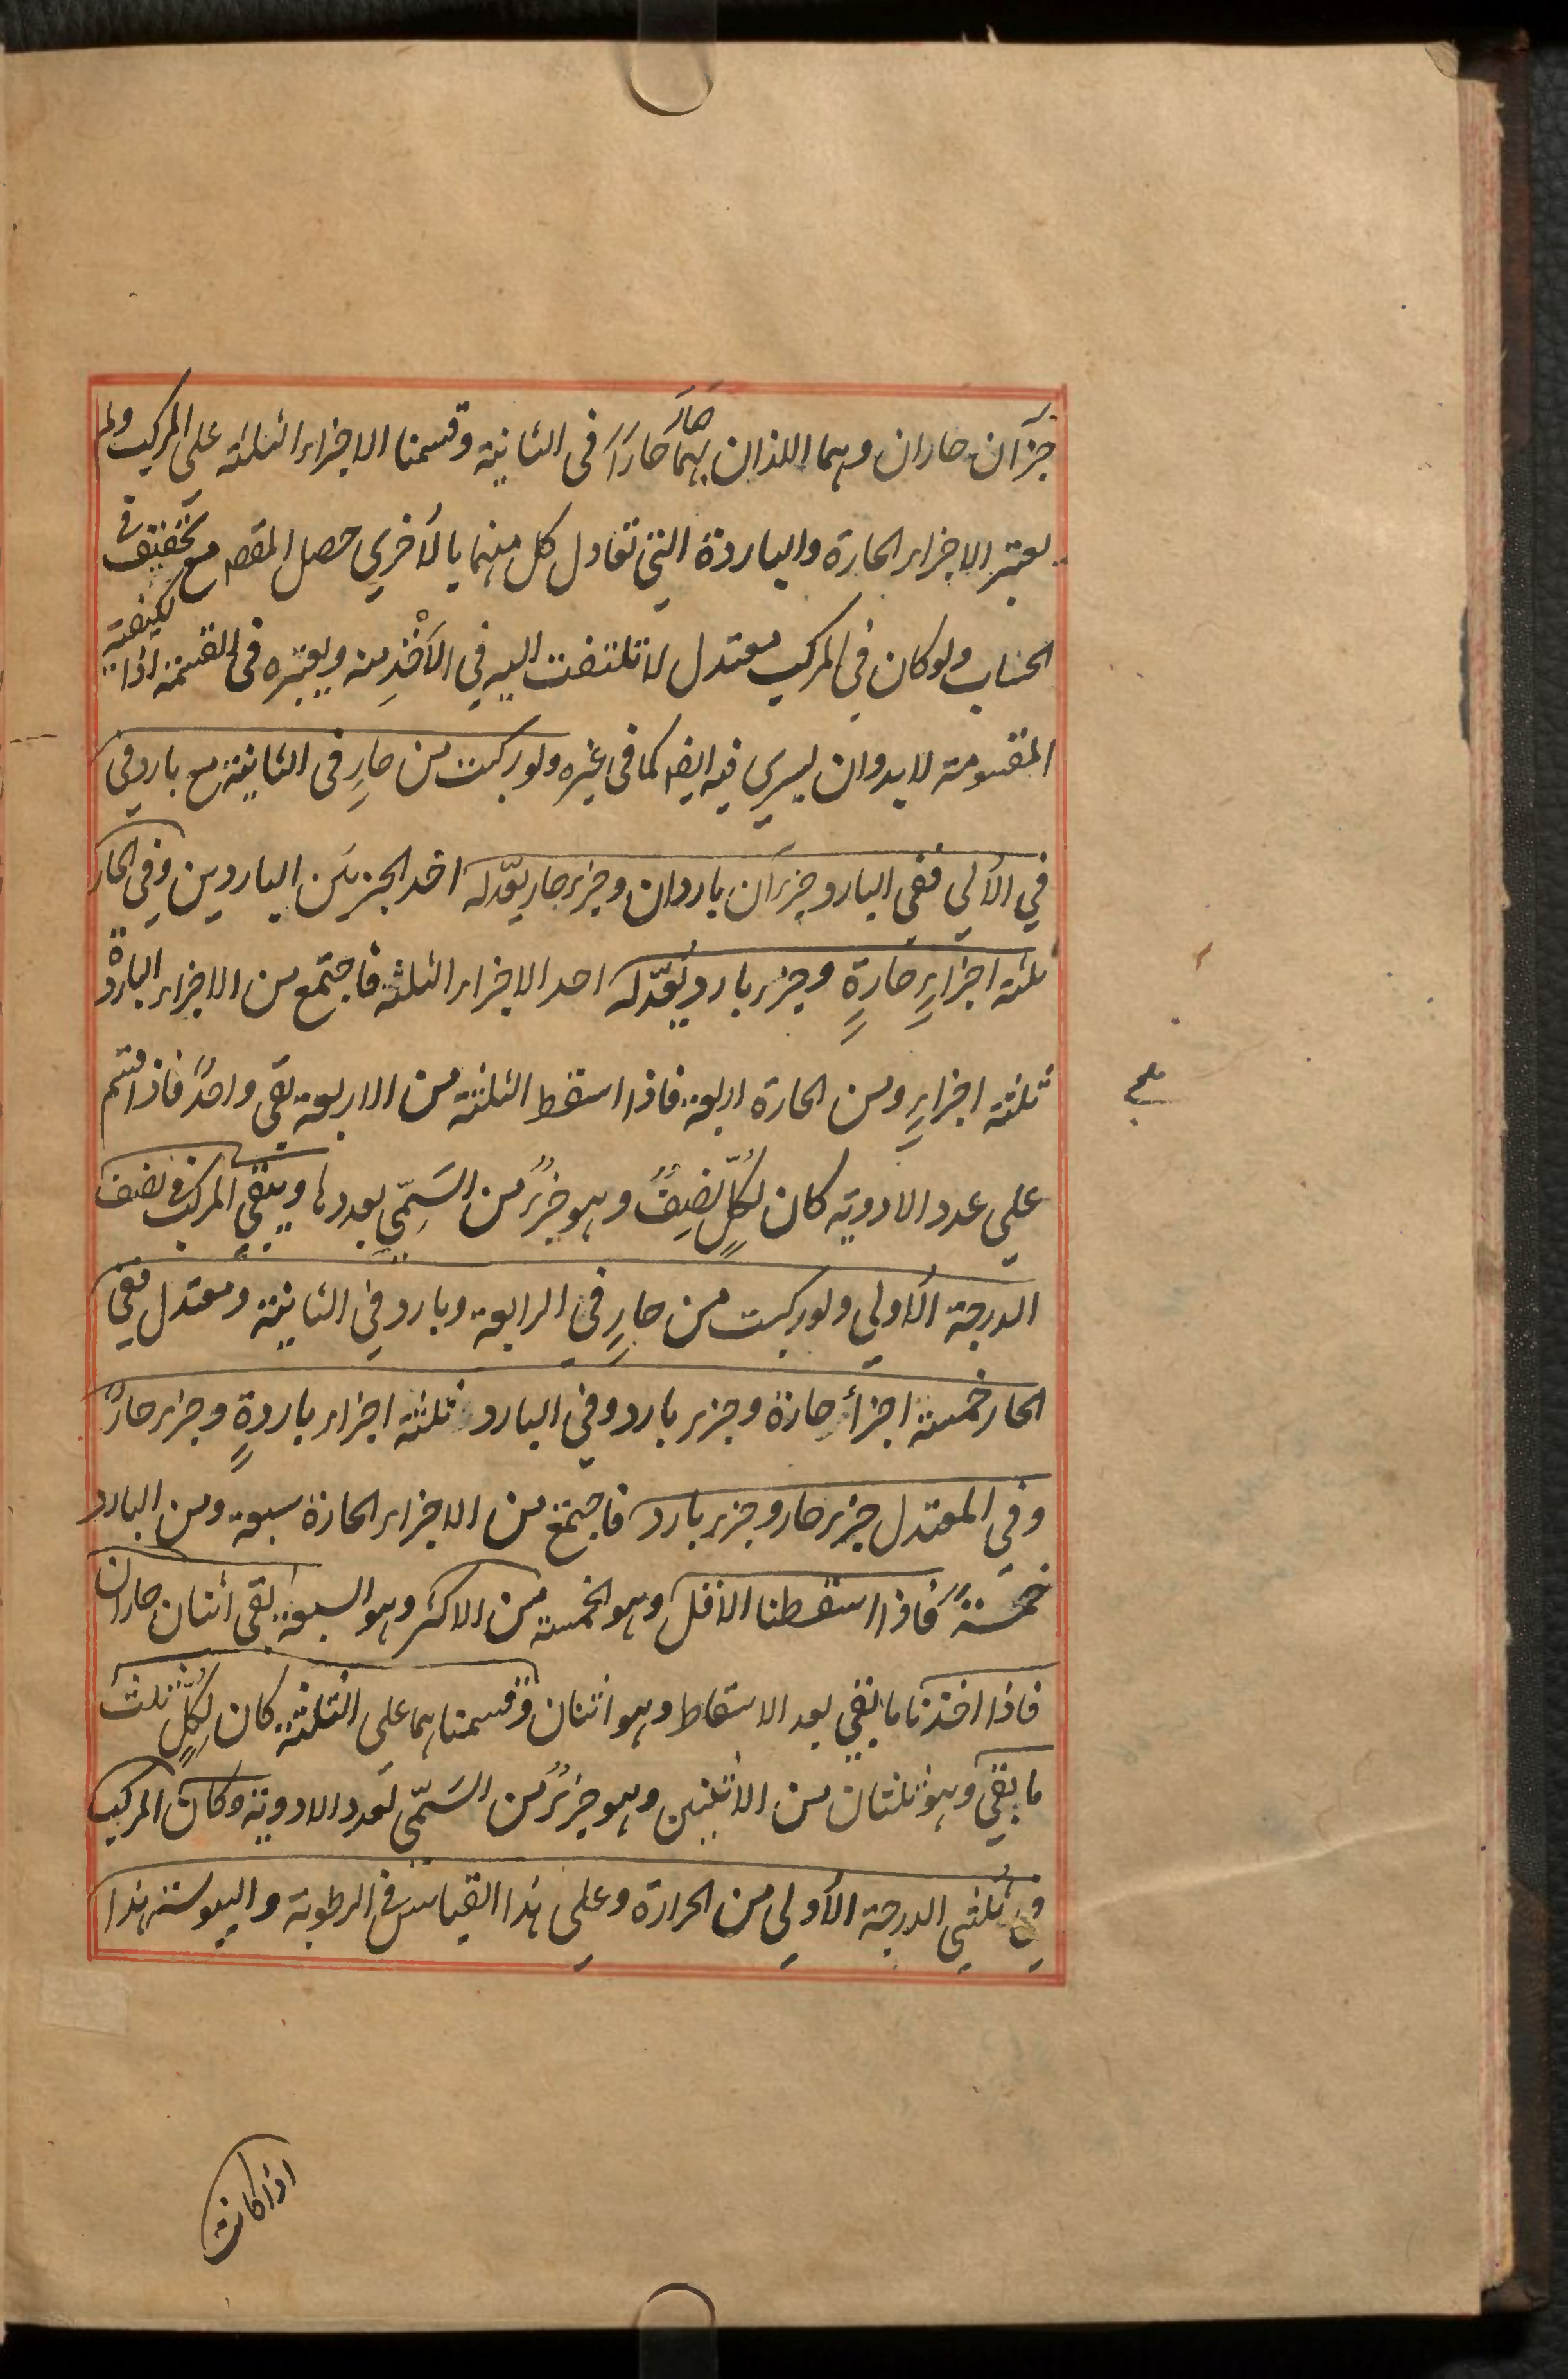 جزآن حاران وهما اللذان بهما صار حارا فى الثانية وقسمنا الاجزاء الثلثة على المركب ولم
يعتبر الاجزاء الحارة والباردة التي تعادل كل منهما بالأخرى حصل المقصـ مع تخفيف فى
الحساب ولو كان في المركب معتدل لا تلتفت اليه في الأخذِ منه ويعتبره فى القسمة اذا لكيفية
المقسومة لابد وان يسري فيه ايضـ كما فى غيره ولو ركبت من حارٍ فى الثانية مع بارد فى
في الأولي ففي البارد جزءآن باردان وجزء حار يعدّله احد الجزيَن الباردين وفي الحار
ثلثة اجزاءٍ حارةٍ وجزء بارد يُعدّله احد الاجزاء الثلثة فاجتمع من الاجزاء الباردة
ثلثة اجزاءٍ ومن الحارة اربعة فاذا اسقط الثلثة من الاربعة بقي واحدٌ فاذا قسم
علي عدد الادوية كان لكلٍّ نصِفٌ وهو جزءٌ من السَمِّي بعددها ويبقي المركب في نصف
الدرجة الأولي ولو ركبت من حارٍ في الرابعة وبارد في الثانية ومعتدل ففي
الحار خمسة اجزأ حارة وجزء بارد وفي البارد ثلثة اجزاء باردةٍ وجزء حارٌ
وفي المعتدل جزء حار وجزء بارد فاجتمع من الاجزاء الحارة سبعة ومن البارد
خمسةً فاذا اسقطنا الاقل وهو الخمسة من الاكثر وهو السبعة بقي اثنان حاران
فاذا اخذنا ما بقي بعد الاسقاط وهو اثنان وقسمناهما على الثلثة كان لِكلٍّ ثلث
ما بقي وهو ثلثان من الاثنين وهو جزءٌ من السَمّي لعدد الادوية وكان المركب
في ثلثي الدرجة الأولي من الحرارة وعلي هذا القياس في الرطوبة واليبوسة هذا
اذا كانت